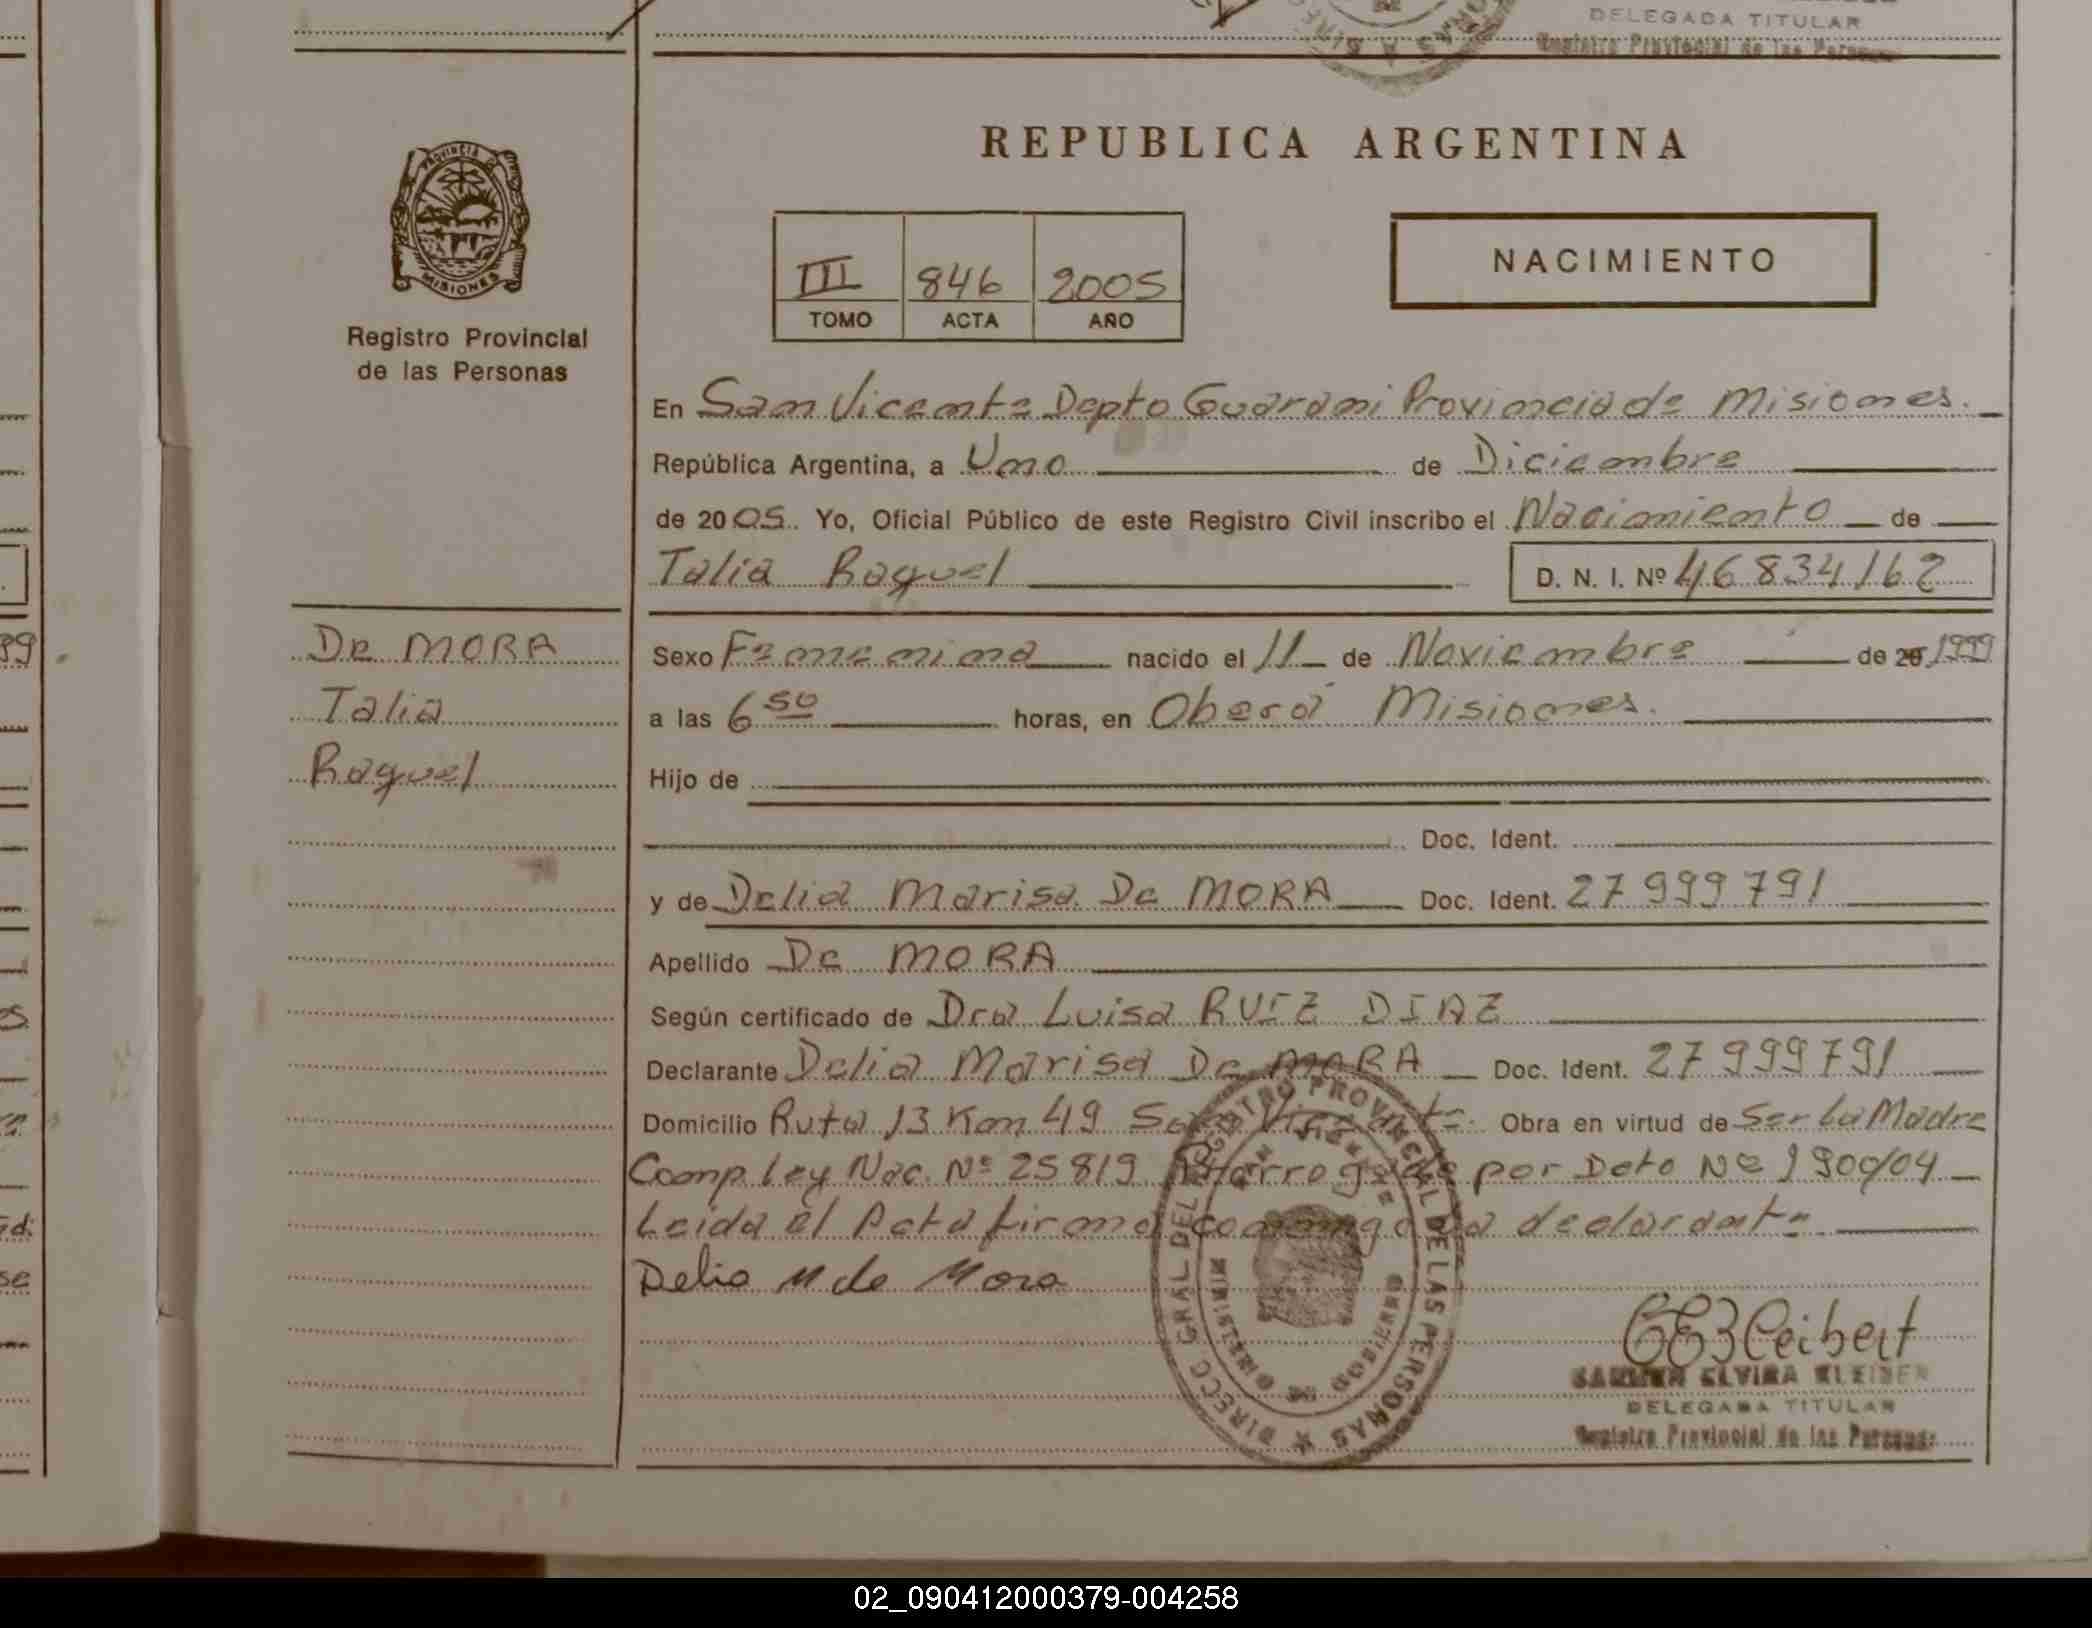 DELEGADA TITULAR
Registro Provincial de las Personas
REPUBLICA ARGENTINA
PROVINCIA DE
MISIONES
Registro Provincial
de las Personas
III 846 2005
TOMO ACTA AÑO
NACIMIENTO
En San Vicente Depto Guarani Provincia de Misiones.
República Argentina, a Uno de Diciembre
de 2005. Yo, Oficial Público de este Registro Civil inscribo el Nacimiento de
Talia Raquel D. N. I. Nº 46834162
De MORA
Talia
Raquel
Sexo Femenina nacido el 11 de Noviembre de 20 1999
a las 6 50 horas, en Oberá Misiones.
Hijo de
Doc. Ident.
y de Delia Marisa De MORA Doc. Ident. 27999791
Apellido De MORA
Según certificado de Dra Luisa RUIZ DIAZ
Declarante Delia Marisa De MORA Doc. Ident. 27999791
Domicilio Ruta 13 Km 49 San Vicente. Obra en virtud de Ser La Madre
Comp. Ley Nac. Nº 25819 Prorrogada por Dcto Nº 1900/04
Leida el Acta firma conmigo la declarante
Delia M de Mora
DIRECC GRAL DEL REGISTRO PROVINCIAL DE LAS PERSONAS
SAN VICENTE
MINISTERIO
GOBIERNO
DELEGADA TITULAR
Registro Provincial de las Personas
02_090412000379-004258